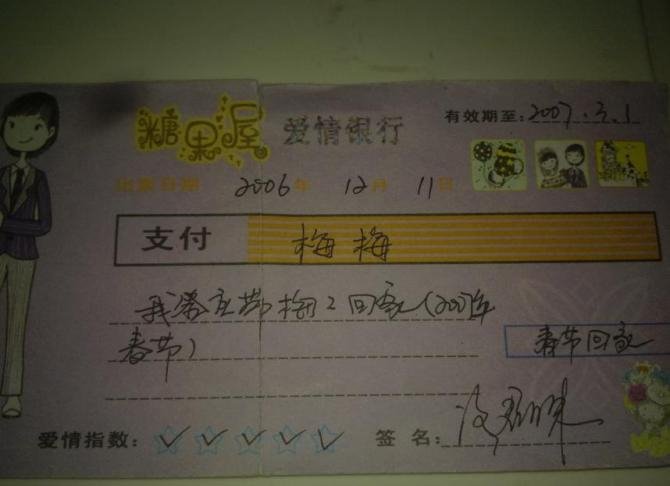 糖果屋 爱情银行 有效期至:2007.3.1
出票日期 2006年 12月 11日
支付 梅梅
我答应带梅2回家(2007年
春节)
春节回家
爱情指数: 签名: